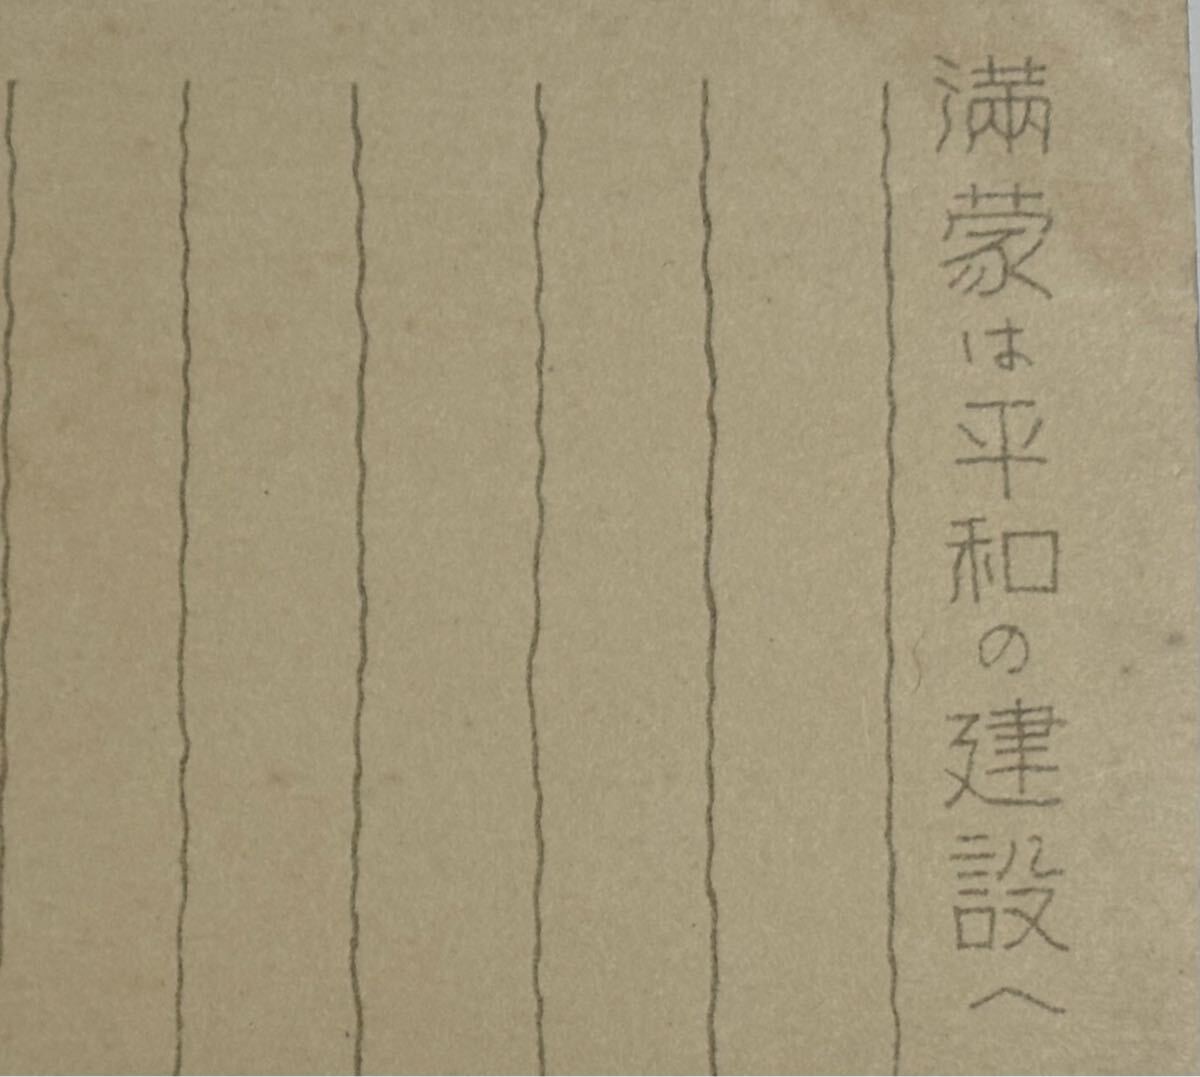 満蒙は平和の建設へ